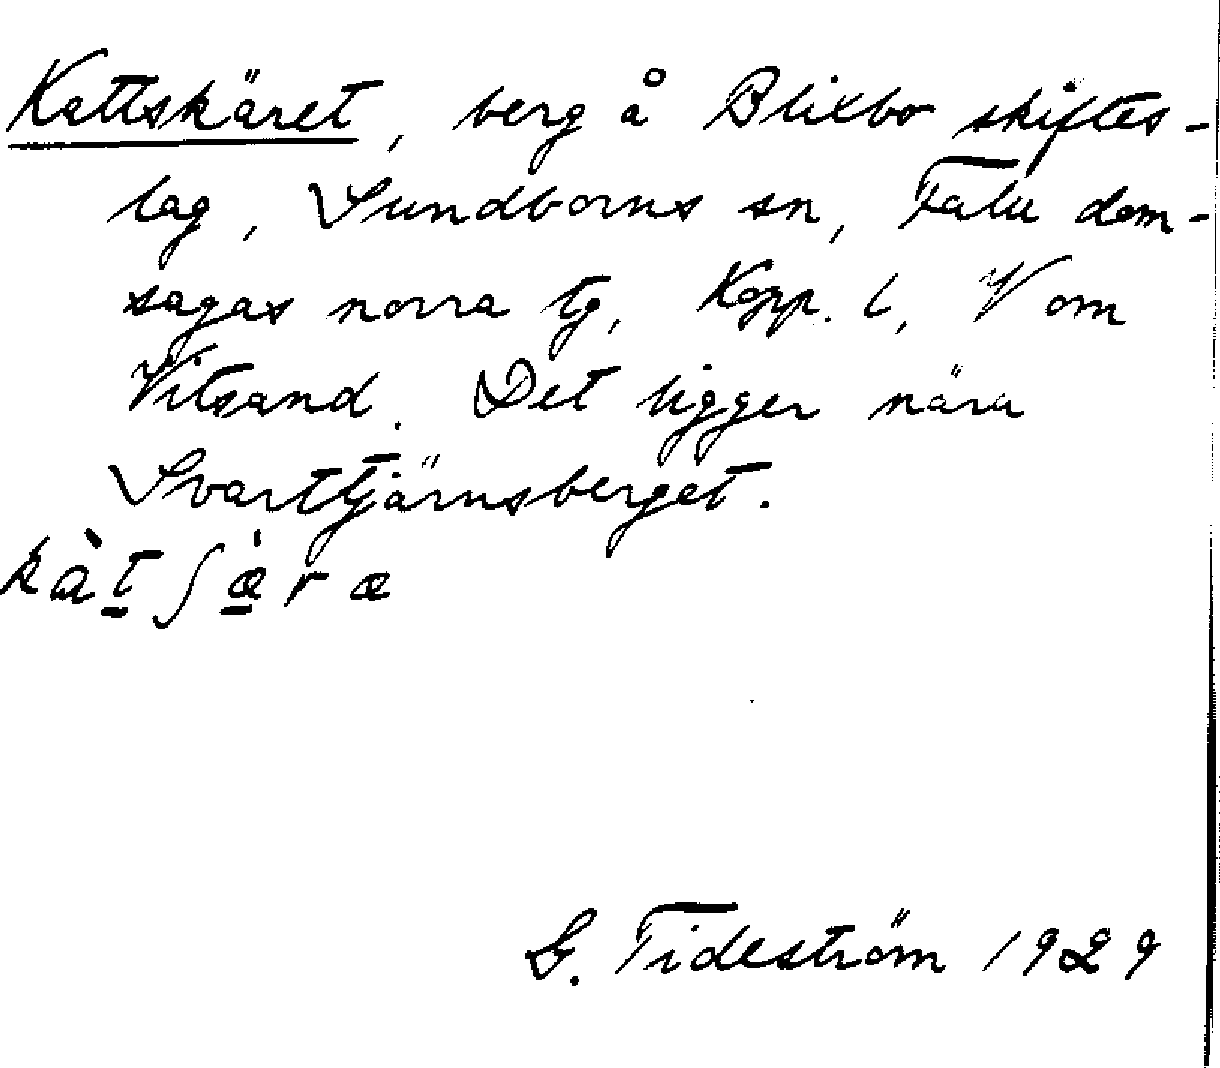 Kattskäret, berg å Blixbo skiftes-
lag, Sundborns sn, Falu dom-
sagas norra tg, Kopp. l, V om
Vitsand. Det ligger nära
Svarttjärnsberget.
kàt̠ʃæ̠̀ræ
G. Tideström 1929